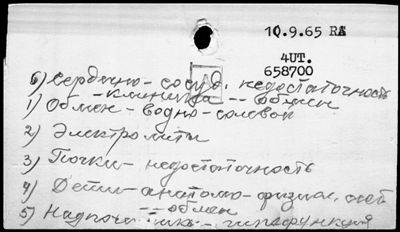 10.9.65 RA
4UT.
658700
6) Сердечно-сосуд. недостаточность
- клиника -- обмен
1) Обмен - водно-солевой
2) Электролиты
3) Почки - недостаточность
4) Дети - анатомо-физиол.
-- обмен
5) Надпочечники - гипофункция